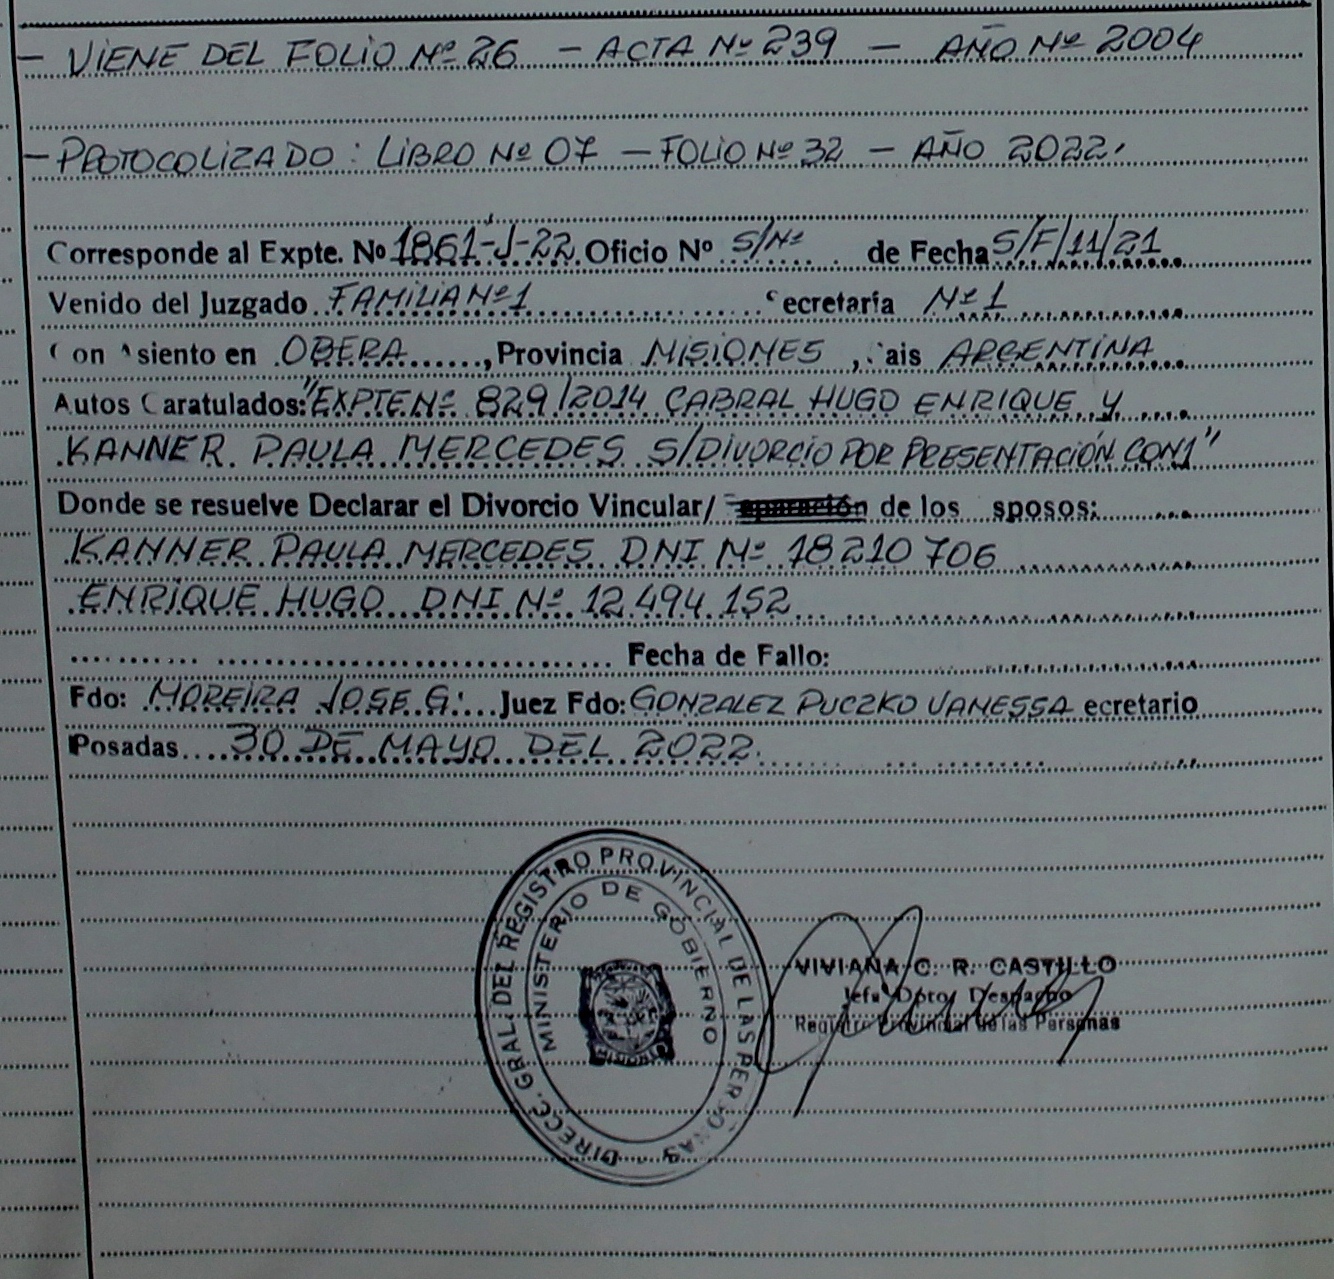 - VIENE DEL FOLIO Nº 26 - ACTA Nº 239 - AÑO Nº 2004
- PROTOCOLIZADO: LIBRO Nº 07 - FOLIO Nº 32 - AÑO 2022.
Corresponde al Expte. Nº 1861-J-22 Oficio Nº S/Nº de Fecha S/F/11/21
Venido del Juzgado FAMILIA Nº 1 ecretaría Nº 1
on siento en OBERA, Provincia MISIONES, ais ARGENTINA
Autos Caratulados: "EXPTE Nº 829/2014 CABRAL HUGO ENRIQUE Y
KANNER PAULA MERCEDES S/DIVORCIO POR PRESENTACIÓN CONJ"
Donde se resuelve Declarar el Divorcio Vincular/ eparación de los sposos:
KANNER PAULA MERCEDES DNI Nº 18210706
ENRIQUE HUGO DNI Nº 12.494.152
Fecha de Fallo:
Fdo: MOREIRA JOSE G. Juez Fdo: GONZALEZ PUCZKO VANESSA ecretario
Posadas 30 DE MAYO DEL 2022.
DIRECC. GRAL. DEL REGISTRO PROVINCIAL DE LAS PERSONAS
MINISTERIO DE GOBIERNO
VIVIANA C. R. CASTILLO
Jefa Dpto. Despacho
Registro Provincial de las Personas